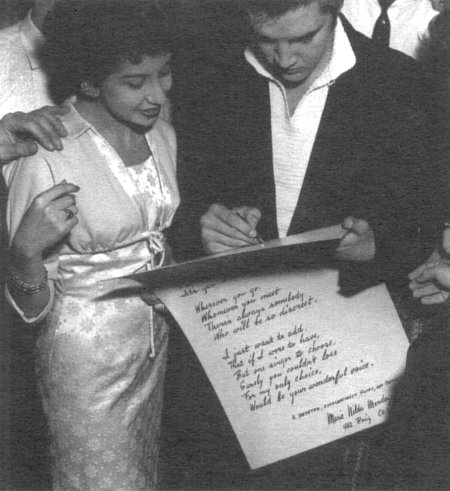 Wherever you go
Whomever you meet
There's always somebody
Who will be so discreet.
I just want to add,
That if I were to have,
But one singer to choose
Surely you couldn't lose
For my only choice,
Would be your wonderful voice.
Maria Hilda